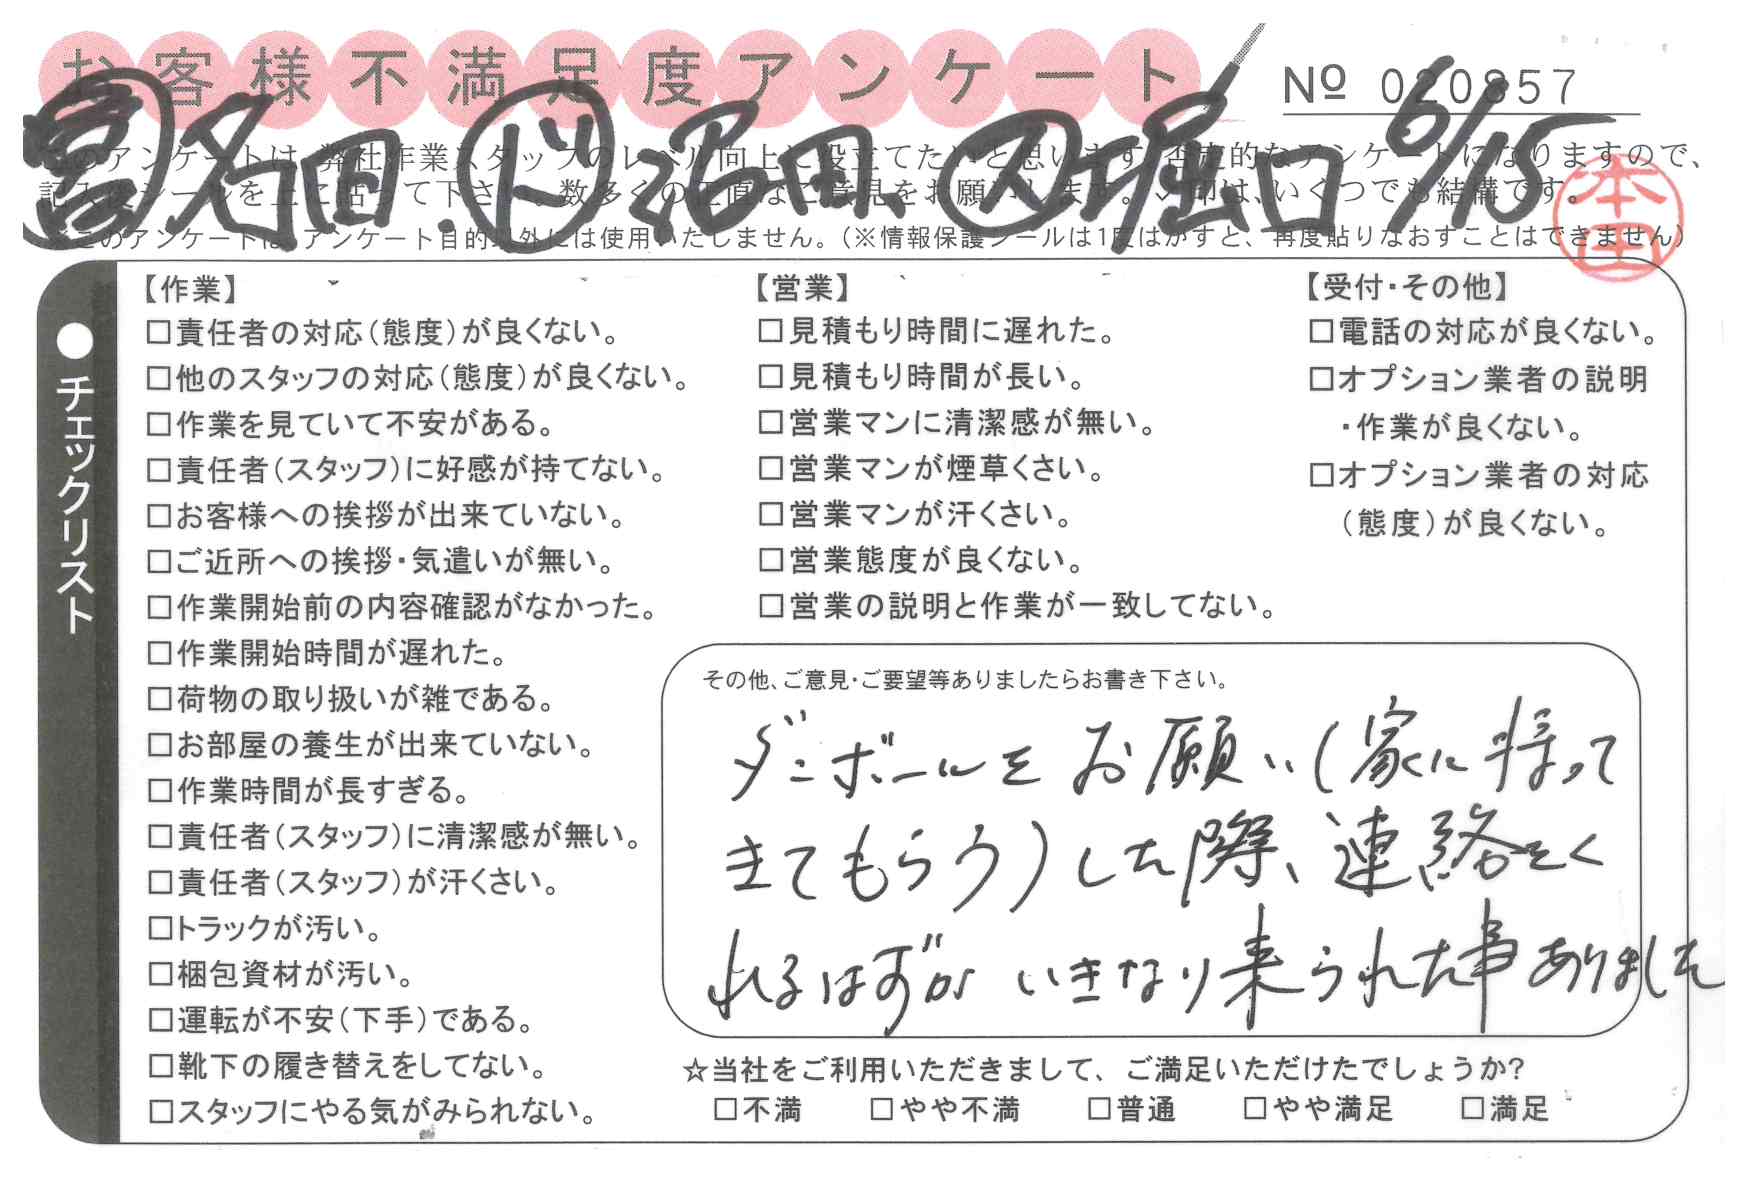 お客様不満足度アンケート
№ 020857
営 名田. ド 沼田、ス 堀口 6/15
このアンケートは、弊社作業スタッフのレベル向上に役立てたいと思います。否定的なアンケートになりますので、
記入後シールを上に貼って下さい。数多くの正直なご意見をお願いします。✓印は、いくつでも結構です。
※このアンケートは、アンケート目的以外には使用いたしません。(※情報保護シールは1度はがすと、再度貼りなおすことはできません)
本田
●チェックリスト
【作業】
□責任者の対応(態度)が良くない。
□他のスタッフの対応(態度)が良くない。
□作業を見ていて不安がある。
□責任者(スタッフ)に好感が持てない。
□お客様への挨拶が出来ていない。
□ご近所への挨拶・気遣いが無い。
□作業開始前の内容確認がなかった。
□作業開始時間が遅れた。
□荷物の取り扱いが雑である。
□お部屋の養生が出来ていない。
□作業時間が長すぎる。
□責任者(スタッフ)に清潔感が無い。
□責任者(スタッフ)が汗くさい。
□トラックが汚い。
□梱包資材が汚い。
□運転が不安(下手)である。
□靴下の履き替えをしてない。
□スタッフにやる気がみられない。
【営業】
□見積もり時間に遅れた。
□見積もり時間が長い。
□営業マンに清潔感が無い。
□営業マンが煙草くさい。
□営業マンが汗くさい。
□営業態度が良くない。
□営業の説明と作業が一致してない。
【受付・その他】
□電話の対応が良くない。
□オプション業者の説明
・作業が良くない。
□オプション業者の対応
(態度)が良くない。
その他、ご意見・ご要望等ありましたらお書き下さい。
ダンボールをお願い(家に持って
きてもらう)した際、連絡をく
れるはずが いきなり来られた事ありました
☆当社をご利用いただきまして、ご満足いただけたでしょうか?
□不満 □やや不満 □普通 □やや満足 □満足